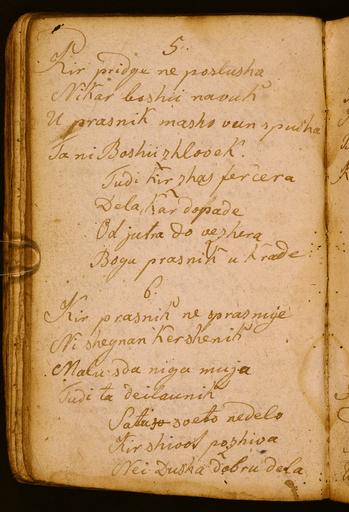 5.
Kir pridgu ne poslusha
Nikar boshii navuk
U prasnik masho vun spusha
Ta ni Boshii zhlovek.
Tudi kir zhas ferzera
Dela kar dopade
Od jutra do vezhera
Bogu prasnik u krade
6.
Kir prasnik ne sprasnuje
Ni shegnan kershenik
Malu sda niga muja
Tudi ta deilaunik
Satu sveto nedelo
Kir shivot pozhiva
Nei Dusha dobru dela